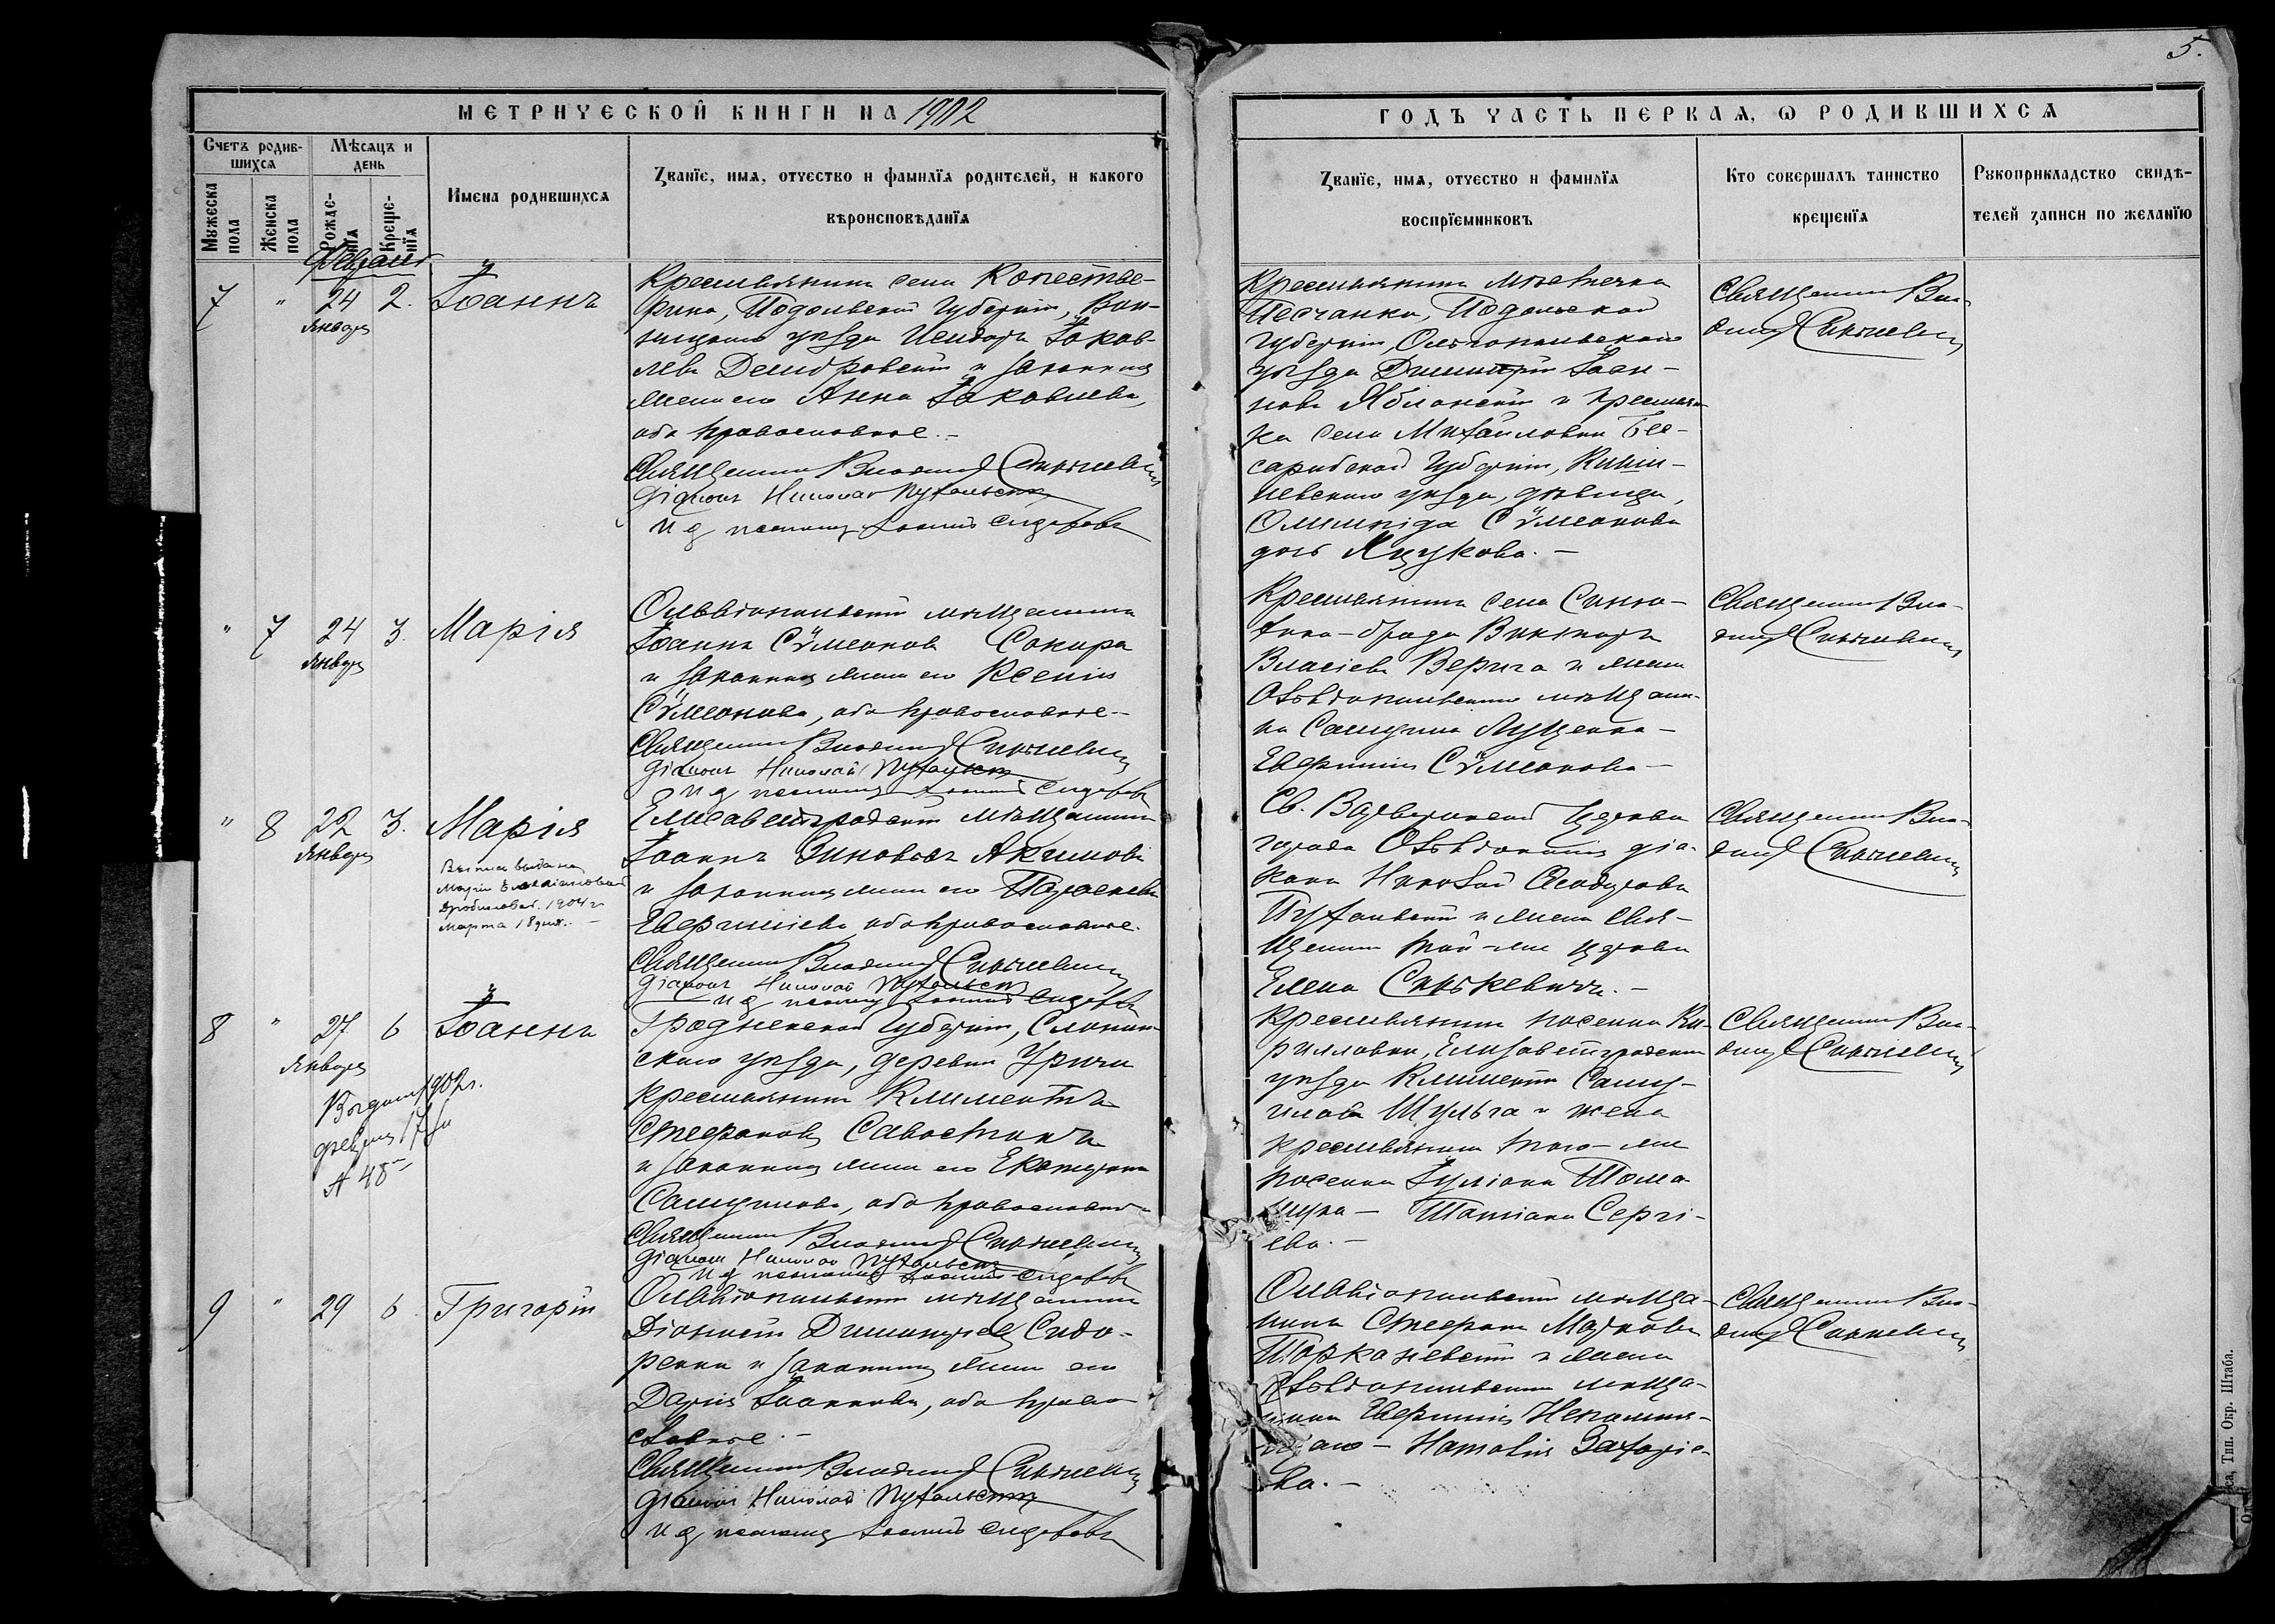 5.
МЕТРИЧЕСКОЙ КНИГИ НА 1902
ГОДЪ ЧАСТЬ ПЕРВАЯ, Ѡ РОДИВШИХСЯ
Счетъ родив-
шихся
Мꙋжеска
пола
Женска
пола
Мѣсяцъ и
день
Рожде-
нїя
Креще-
нїя
Имена родившихся
Званїе, имя, отчество и фамилїя родителей, и какого
вѣроисповѣданїя
Званїе, имя, отчество и фамилїя
воспрїемниковъ
Кто совершалъ таинство
крещенїя
Рꙋкоприкладство свидѣ-
телей записи по желанїю
7 " 24 2. Іоаннъ
Января
Крестьянинъ села
Подольской Губерніи, Вин-
уѣзда Исидоръ Іаков-
левъ и законная
жена его Анна Іаковлева,
оба православные.-
Священникъ Владимір
Діаконъ Николай Пухальскій
и д псаломщ Сидоровъ
Крестьянинъ мѣстечка
Песчанки, Подольской
Губерніи, Ольгопольскаго
уѣзда Димитрій Іоан-
новъ Яблонскій и крестьян-
ка села Михайловки Бес-
сарабской Губерніи, Киши-
невскаго уѣзда, дѣвица,
Олимпіда Сѵмеонова
дочь Яцукова.-
Священникъ Вла-
димір
" 7 24 3. Марія
Января
Ольвіопольскій мѣщанинъ
Іоаннъ Сѵмеоновъ Сокира
и законная жена его Ксенія
Сѵмеонова, оба православные-
Священникъ Владимір
Діаконъ Николай Пухальскій
и д псаломщ Сидоровъ
Крестьянинъ села Синю-
хина-брода Викторъ
Власіевъ Верига и жена
Ольвіопольскаго мѣщани-
на Самуила Луценка-
Евфимія Сѵмеонова-
Священникъ Вла-
димір
" 8 22 3. Марія
Января
1904 г
Марта 18 дня.-
Елисаветградскій мѣщанинъ
Іоаннъ Зиновьевъ Акимовъ
и законная жена его Параскева
Евфиміева оба православные.
Священникъ Владимір
Діаконъ Николай Пухальскій
и д псаломщ Сидоровъ
Св. Церкви
города Ольвіополя діа-
конъ Николай Ѳеодоровъ
Пухальскій и жена свя-
щенника той-же церкви
Елена Синькевичъ.-
Священникъ Вла-
димір
8 " 27 6 Іоаннъ
Января
1902 г.
Гродненской Губерніи, Слоним-
скаго уѣзда, деревни
крестьянинъ Климентъ
Стефановъ
и законная жена его Екатерина
Самуилова, оба православные
Священникъ Владимір
Діаконъ Николай Пухальскій
и д псаломщ Сидоровъ
Крестьянинъ поселка Ки-
рилловки, Елизаветградскаго
уѣзда Климентъ Саму-
иловъ Шульга и жена
крестьянина того-же
поселка Іуліана
Татіана Сергі-
ева.-
Священникъ Вла-
димір
9 " 29 6 Григорій
Ольвіопольскій мѣщанинъ
Діонисій Димитріевъ Сидо-
ренко и законная жена его
Дарія Іоаннова, оба право-
славные.-
Священникъ Владимір
Діаконъ Николай Пухальскій
и д псаломщ Сидоровъ
Ольвіопольскій мѣща-
нинъ Стефанъ Марковъ
и жена
Ольвіопольскаго мѣща-
нина Евфимія
Наталія Захаріе-
ва.-
Священникъ Вла-
димір
Тип. Окр. Штаба.